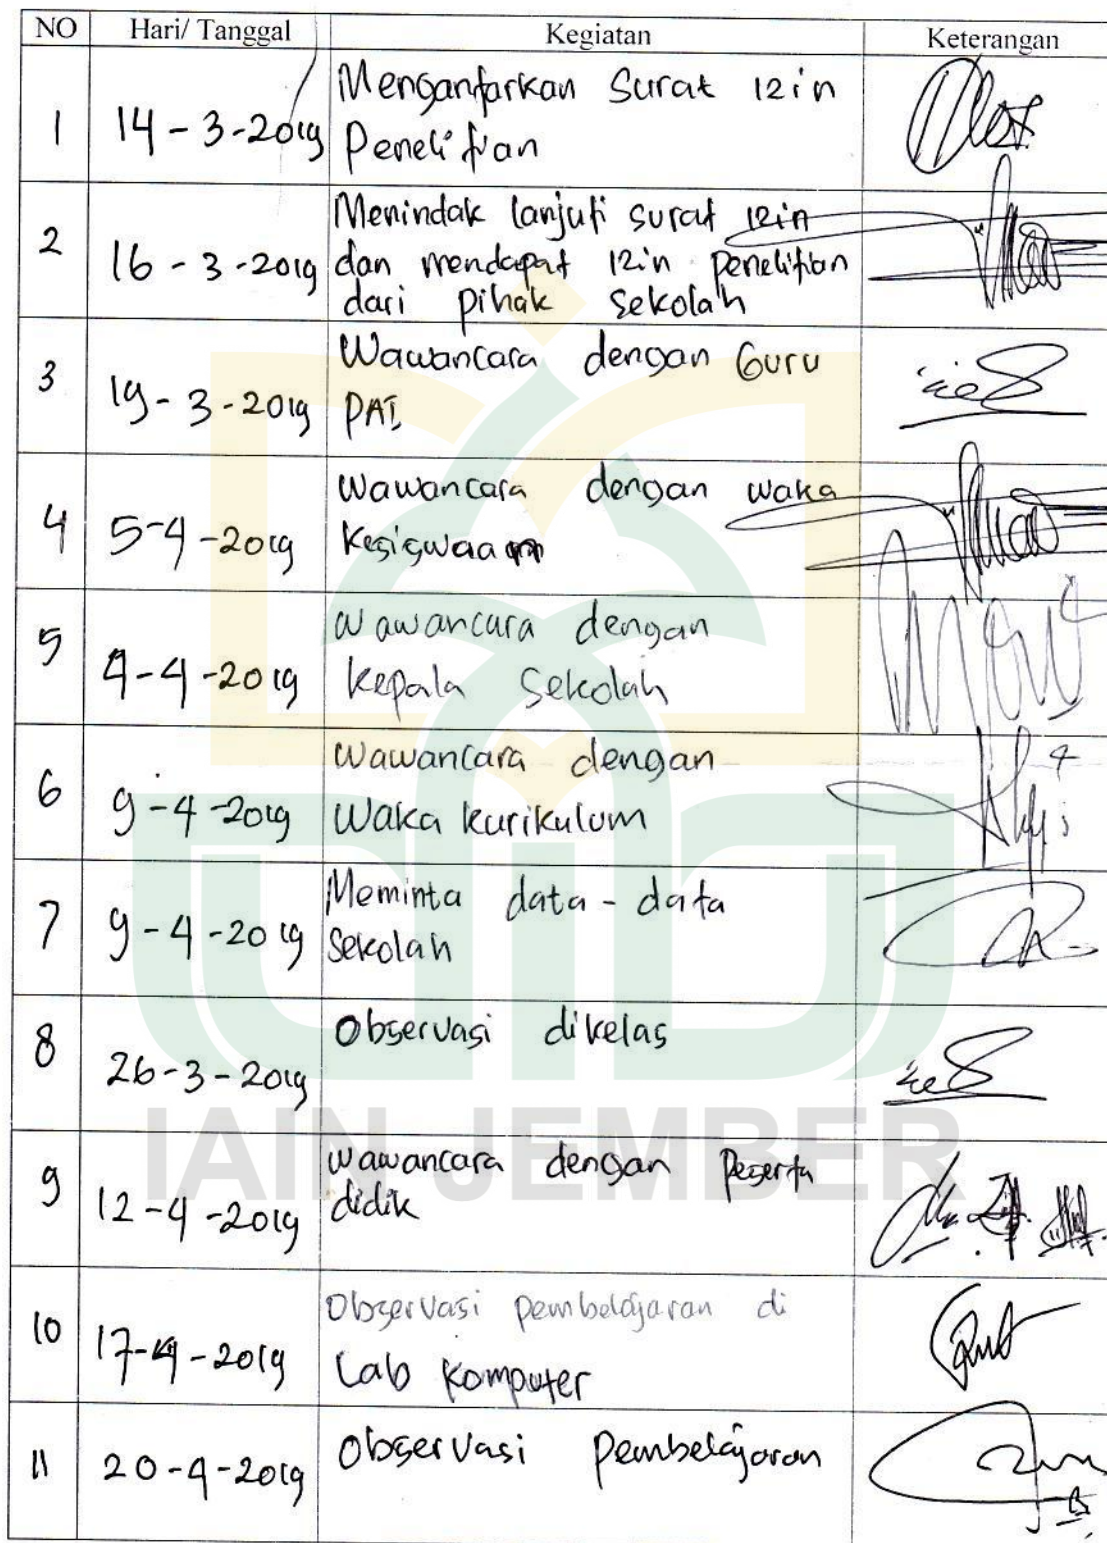 NO Hari/ Tanggal Kegiatan Keterangan
1 14-3-2019 Mengantarkan Surat izin
Penelitian
2 16-3-2019 Menindak lanjuti surat izin
dan mendapat izin penelitian
dari pihak sekolah
3 19-3-2019 Wawancara dengan Guru
PAI
4 5-4-2019 Wawancara dengan waka
Kesiswaan
5 4-4-2019 Wawancara dengan
Kepala Sekolah
6 9-4-2019 Wawancara dengan
Waka kurikulum
7 9-4-2019 Meminta data-data
Sekolah
8 26-3-2019 Observasi dikelas
IAIN JEMBER
9 12-4-2019 Wawancara dengan Peserta
didik
10 17-4-2019 Observasi pembelajaran di
Lab Komputer
11 20-4-2019 Observasi Pembelajaran